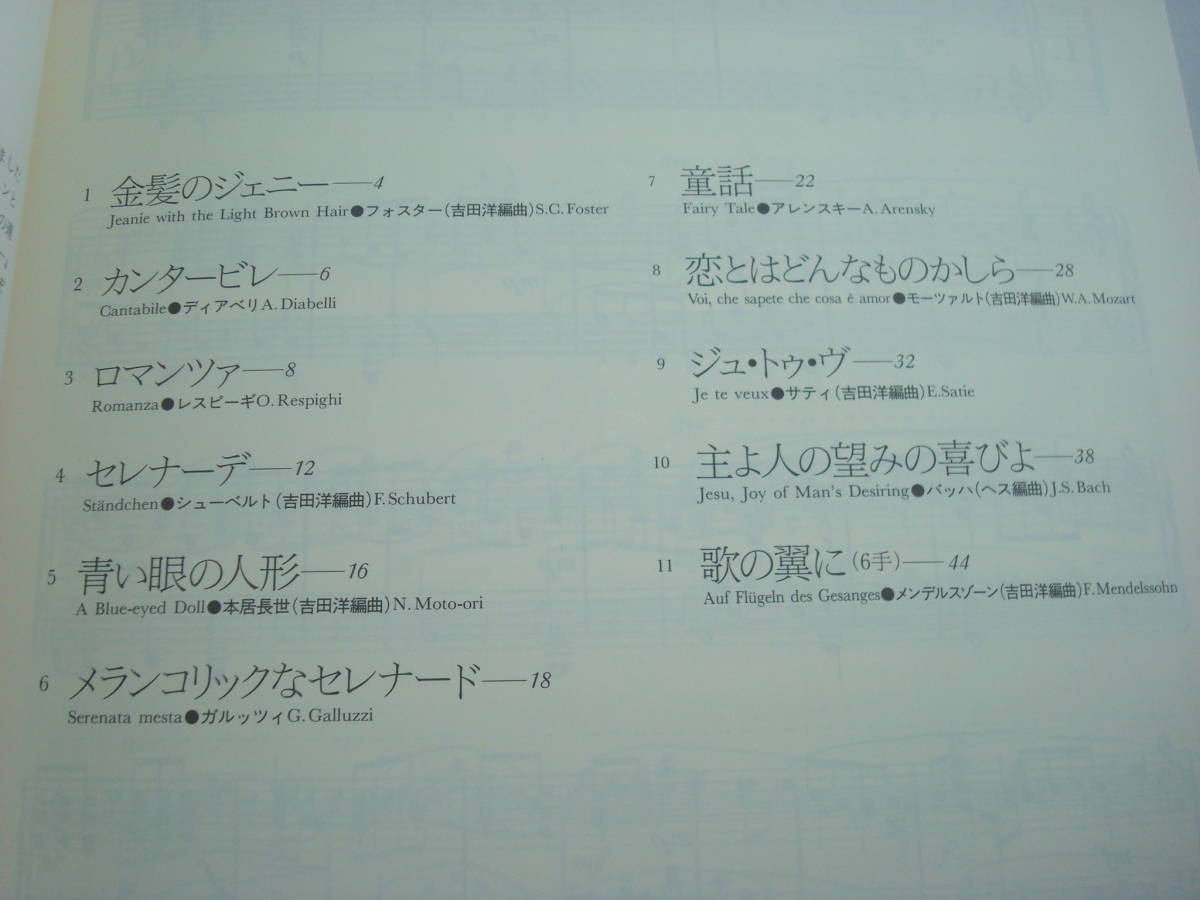 1 金髪のジェニー――4
Jeanie with the Light Brown Hair●フォスター(吉田洋編曲)S.C. Foster
2 カンタービレ――6
Cantabile●ディアベリA. Diabelli
3 ロマンツァ――8
Romanza●レスピーギO. Respighi
4 セレナーデ――12
Ständchen●シューベルト(吉田洋編曲)F. Schubert
5 青い眼の人形――16
A Blue-eyed Doll●本居長世(吉田洋編曲)N. Moto-ori
6 メランコリックなセレナード――18
Serenata mesta●ガルッツィG. Galluzzi
7 童話――22
Fairy Tale●アレンスキーA. Arensky
8 恋とはどんなものかしら――28
Voi, che sapete che cosa è amor●モーツァルト(吉田洋編曲)W.A. Mozart
9 ジュ・トゥ・ヴ――32
Je te veux●サティ(吉田洋編曲)E.Satie
10 主よ人の望みの喜びよ――38
Jesu, Joy of Man's Desiring●バッハ(ヘス編曲)J.S. Bach
11 歌の翼に(6手)――44
Auf Flügeln des Gesanges●メンデルスゾーン(吉田洋編曲)F. Mendelssohn